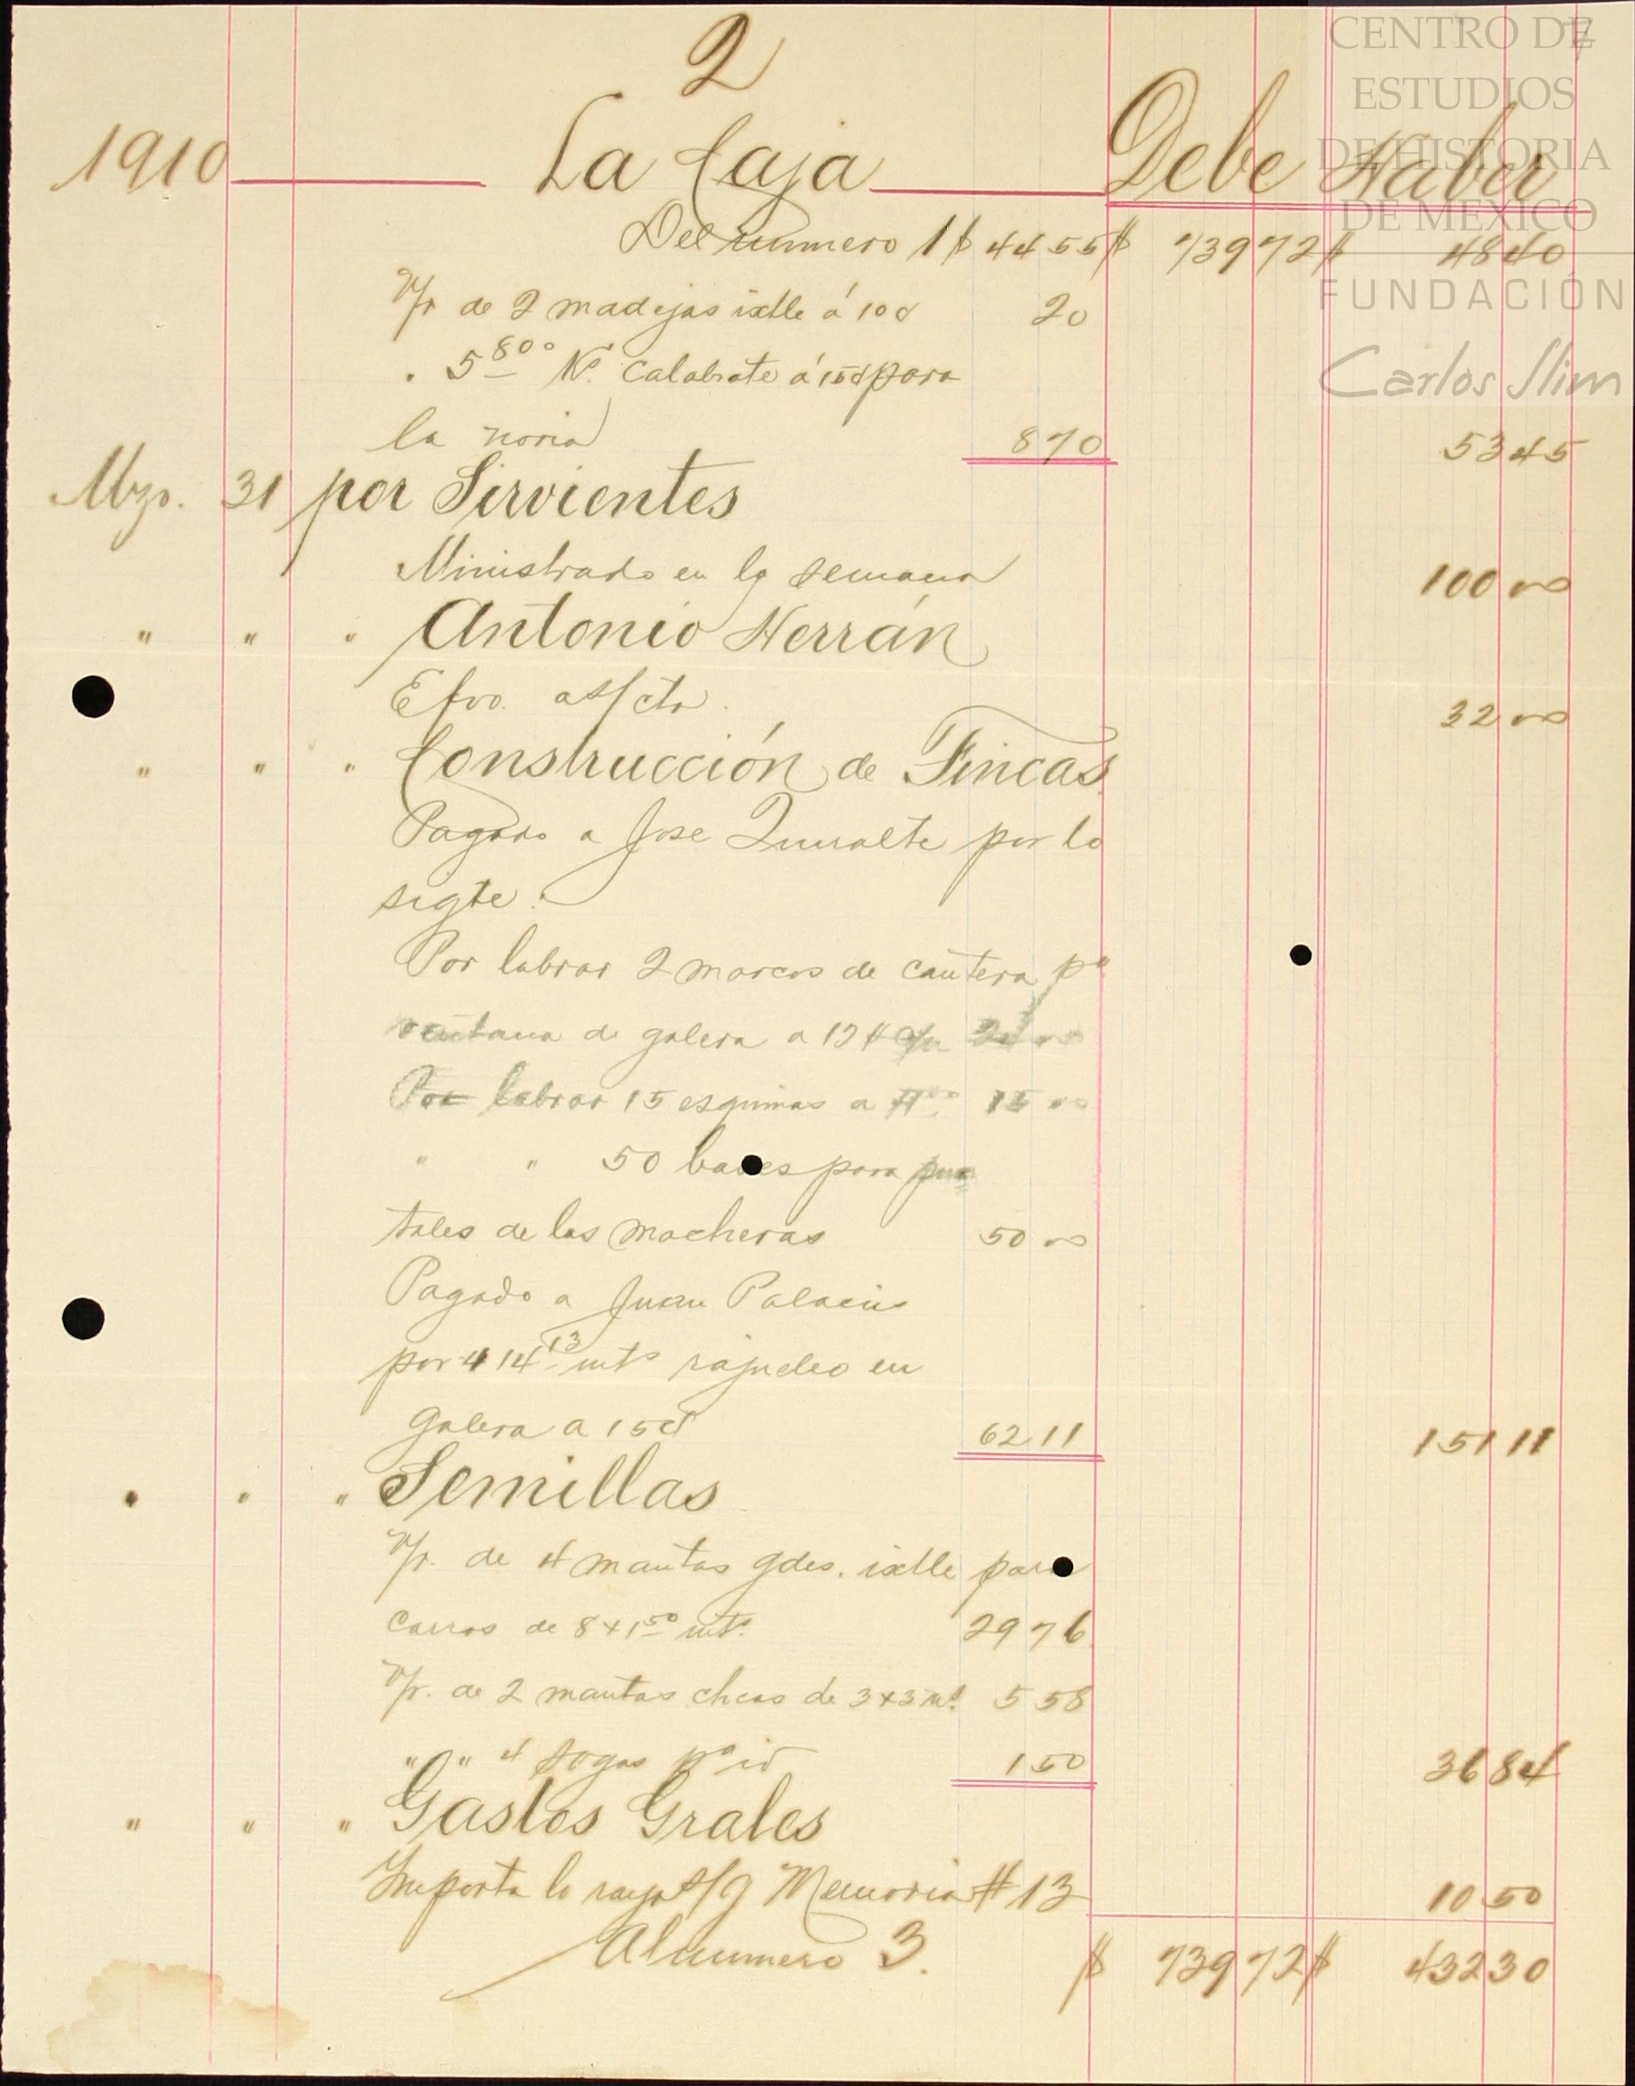 2
7
CENTRO DE
ESTUDIOS
DE HISTORIA
DE MEXICO
FUNDACIÓN
Carlos Slim
1910 La Caja Debe Haber
Del numero 1 $ 44 55 $ 739 72 $ 48 40
V/r de 2 madejas ixtle á 10¢ 20
" 5 800 K. Calabrote á 15¢ para
la noria 8 70 53 45
Mzo. 31 por Sirvientes
Ministrado en la semana 100 00
" " " Antonio Herrán
Efvo. a s/cta. 32 00
" " " Construcción de Fincas
Pagado a Jose por lo
sigte.
Por labrar 2 marcos de cantera pa
ventana de galera a 12 $ 24 00
Por labrar 15 esquinas a 15 00
" " 50 bases para pun
tales de las macheras 50 00
Pagado a Juan Palacios
por 414 13 mts rajueleo en
galera a 15¢ 62 11 151 11
" " " Semillas
V/r. de 4 mantas gdes. ixtle para
carros de 8 x 1 50 mts. 29 76
V/r. de 2 mantas chcas de 3x3 mts. 5 58
" " 4 sogas pa id 1 50 36 84
" " " Gastos Grales
Importa la raya s/g Memoria # 13 10 50
Al numero 3. $ 739 72 $ 432 30